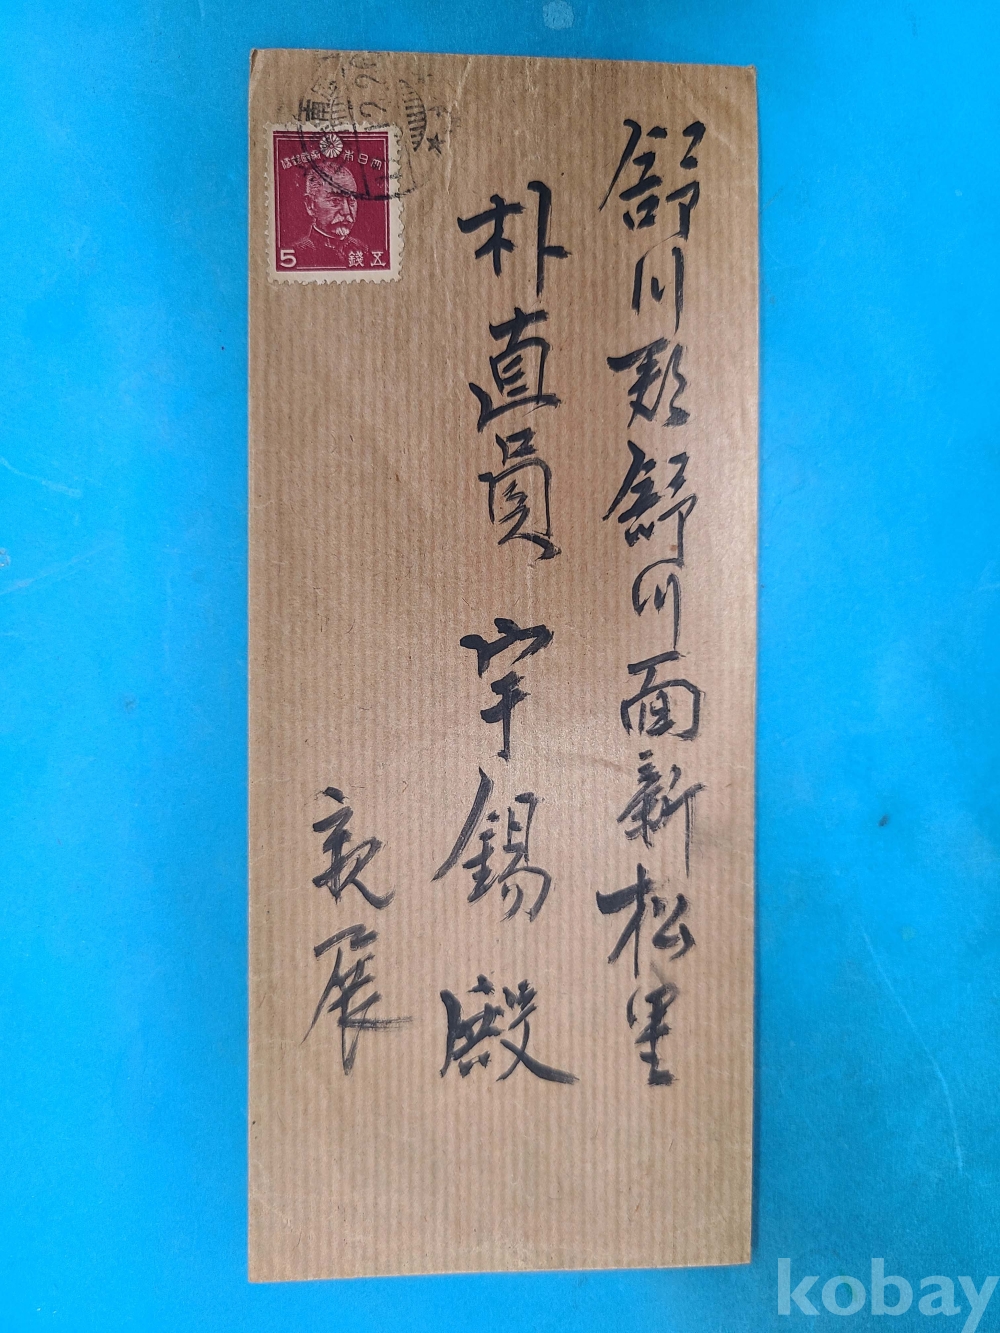 舒川郡舒川面新松里
朴直員 宇錫 殿
親展
大日本帝國郵便
5 錢五
kobay